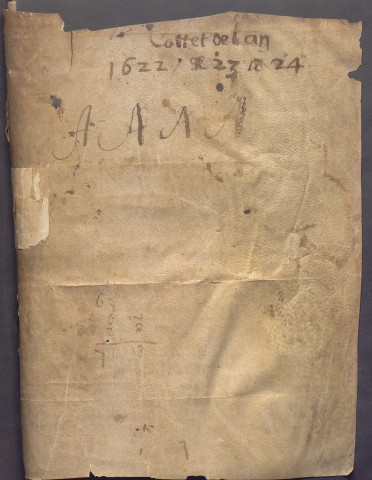 Cottet de l an
1622 / & 23 & 24
A A A A